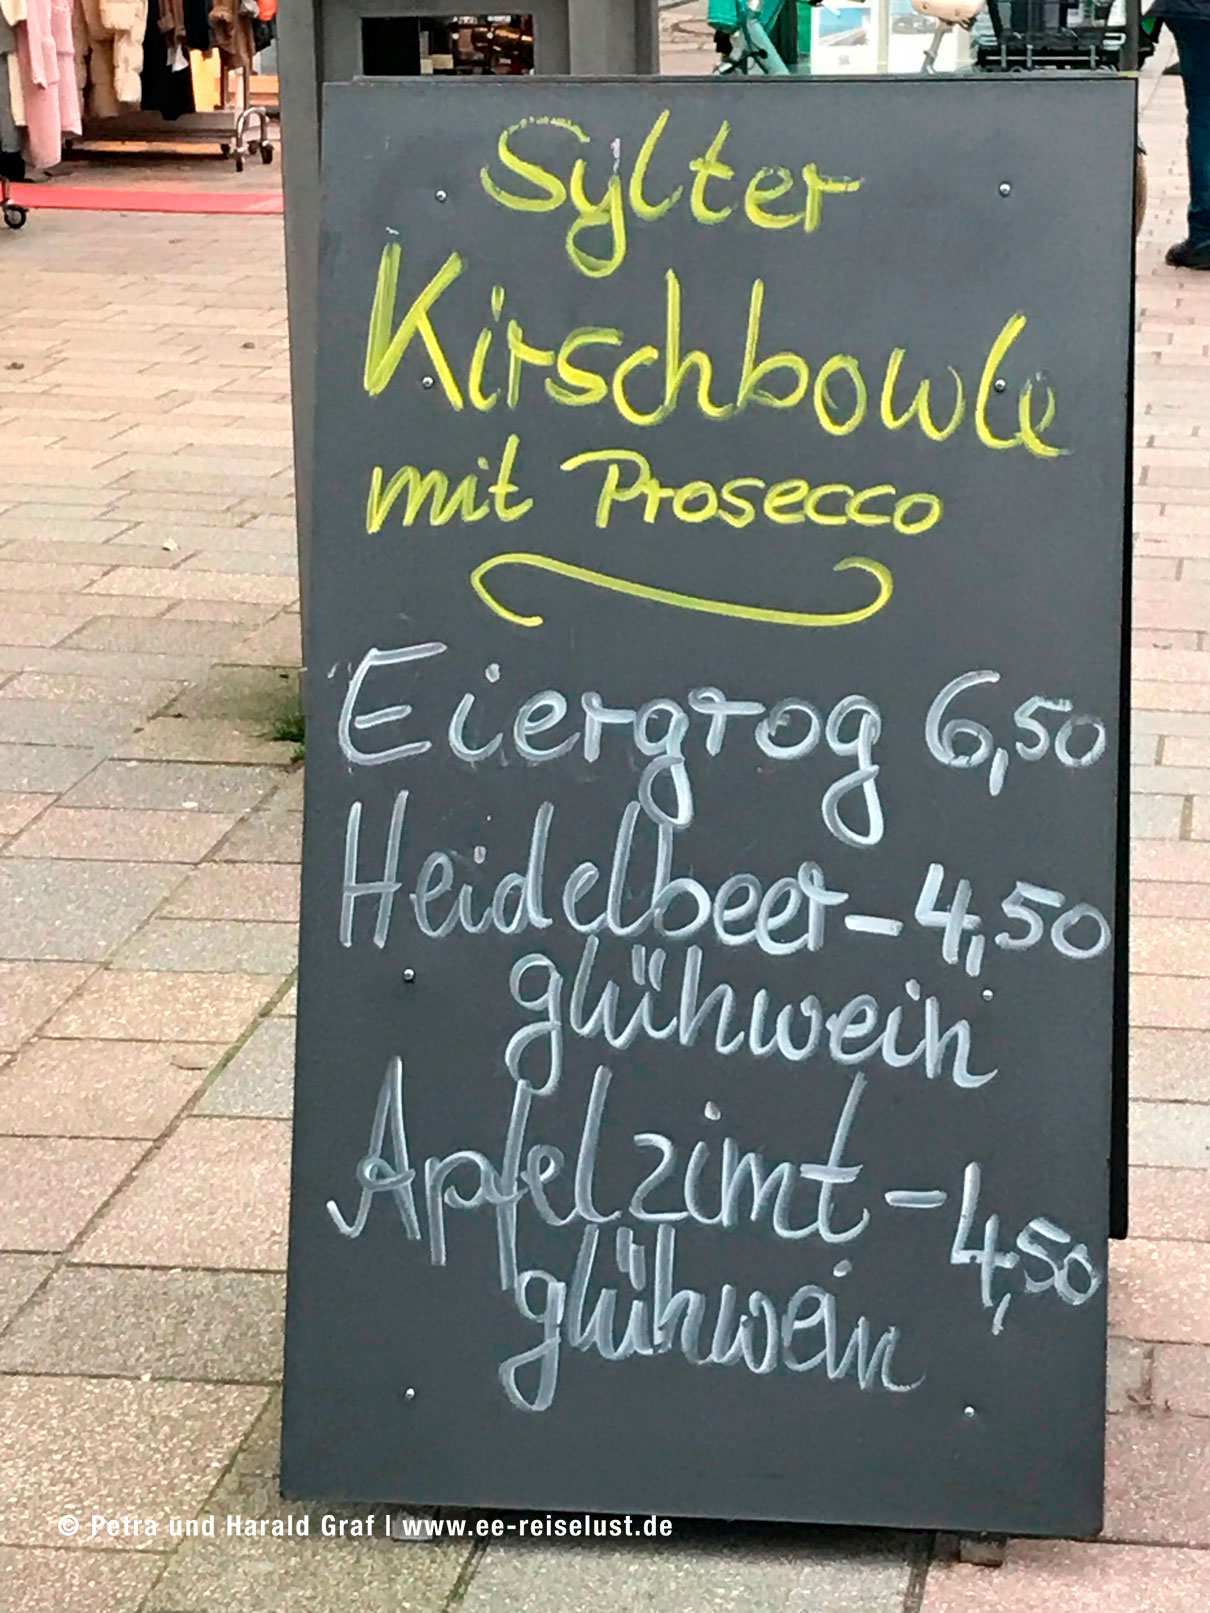 Sylter
Kirschbowle
mit Prosecco
Eiergrog 6,50
Heidelbeer- 4,50
glühwein
Apfelzimt- 4,50
glühwein
© Petra und Harald Graf | www.ee-reiselust.de